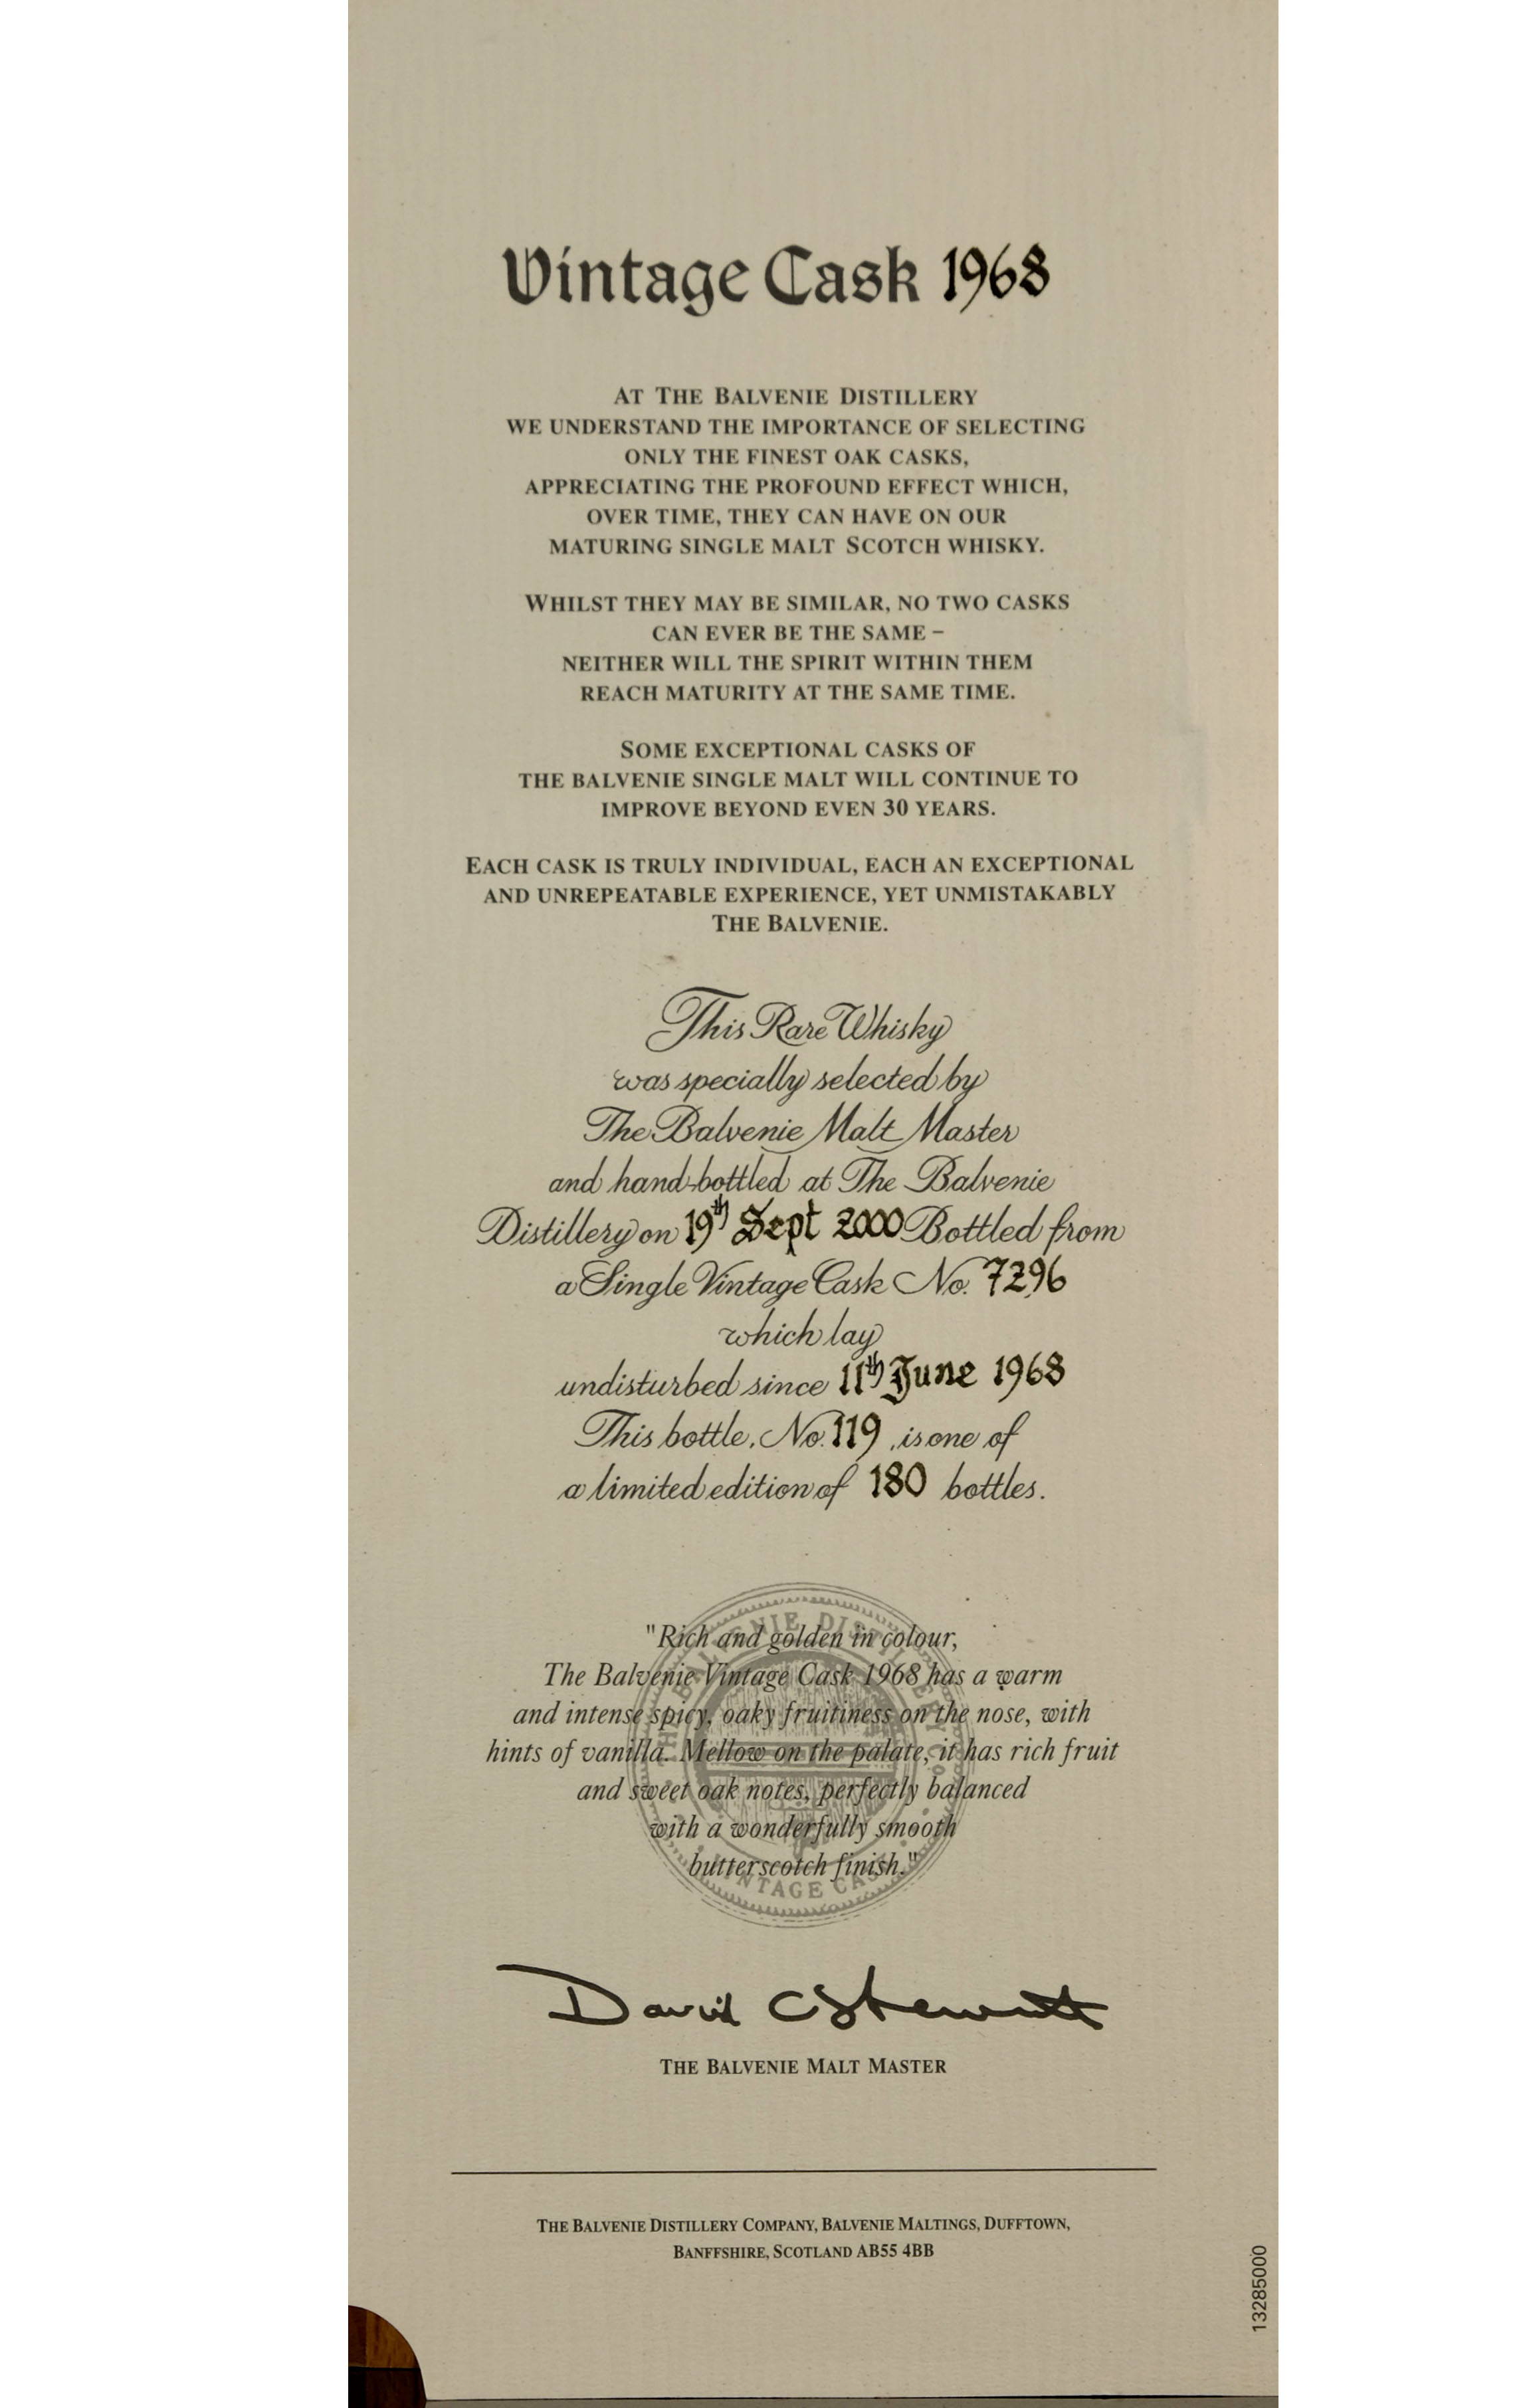 Vintage Cask 1968
AT THE BALVENIE DISTILLERY
WE UNDERSTAND THE IMPORTANCE OF SELECTING
ONLY THE FINEST OAK CASKS,
APPRECIATING THE PROFOUND EFFECT WHICH,
OVER TIME, THEY CAN HAVE ON OUR
MATURING SINGLE MALT SCOTCH WHISKY.
WHILST THEY MAY BE SIMILAR, NO TWO CASKS
CAN EVER BE THE SAME –
NEITHER WILL THE SPIRIT WITHIN THEM
REACH MATURITY AT THE SAME TIME.
SOME EXCEPTIONAL CASKS OF
THE BALVENIE SINGLE MALT WILL CONTINUE TO
IMPROVE BEYOND EVEN 30 YEARS.
EACH CASK IS TRULY INDIVIDUAL, EACH AN EXCEPTIONAL
AND UNREPEATABLE EXPERIENCE, YET UNMISTAKABLY
THE BALVENIE.
This Rare Whisky
was specially selected by
The Balvenie Malt Master
and hand-bottled at The Balvenie
Distillery on 19th Sept 2000 Bottled from
a Single Vintage Cask No. 7296
which lay
undisturbed since 11th June 1968
This bottle, No. 119, is one of
a limited edition of 180 bottles.
"Rich and golden in colour,
The Balvenie Vintage Cask 1968 has a warm
and intense spicy, oaky fruitiness on the nose, with
hints of vanilla. Mellow on the palate, it has rich fruit
and sweet oak notes, perfectly balanced
with a wonderfully smooth
butterscotch finish."
THE BALVENIE DISTILLERY CO.
VINTAGE CASK
David C Stewart
THE BALVENIE MALT MASTER
THE BALVENIE DISTILLERY COMPANY, BALVENIE MALTINGS, DUFFTOWN,
BANFFSHIRE, SCOTLAND AB55 4BB
13285000